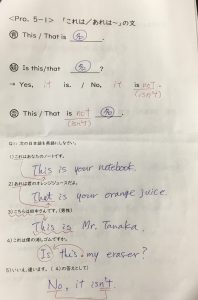 <Pro. 5-1> 「これは/あれは〜」の文
肯 This / That is 名 .
疑 Is this/that 名 ?
→ Yes, it is. / No, it is not.
(isn't)
否 This / That is not 名 .
(isn't)
Q1: 次の日本語を英訳しなさい。
1) これはあなたのノートです。
This is your notebook.
2) あれは君のオレンジジュースだよ。
That is your orange juice.
3) こちらは田中さんです。(男性)
This is Mr. Tanaka.
4) これは僕の消しゴムですか。
Is this my eraser?
5) いいえ、違います。( 4)の答えとして)
No, it isn't.